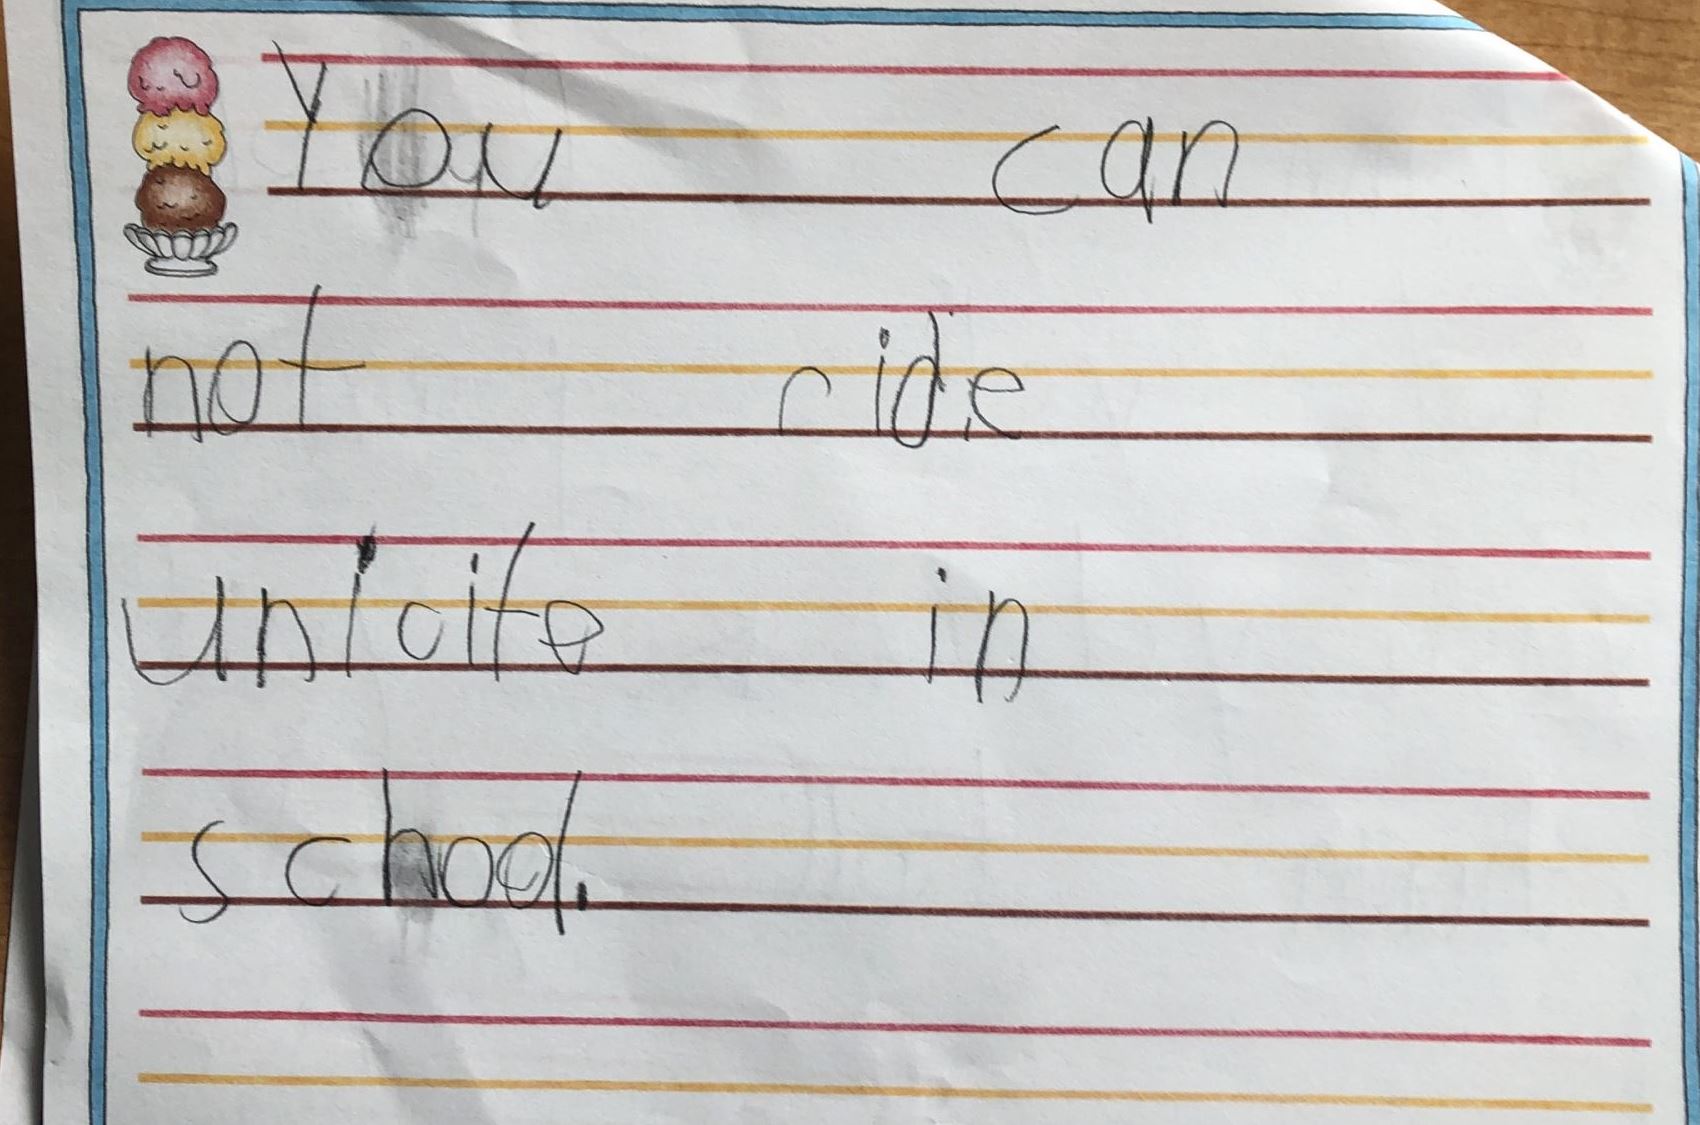 You can
not ride
unicite in
school.